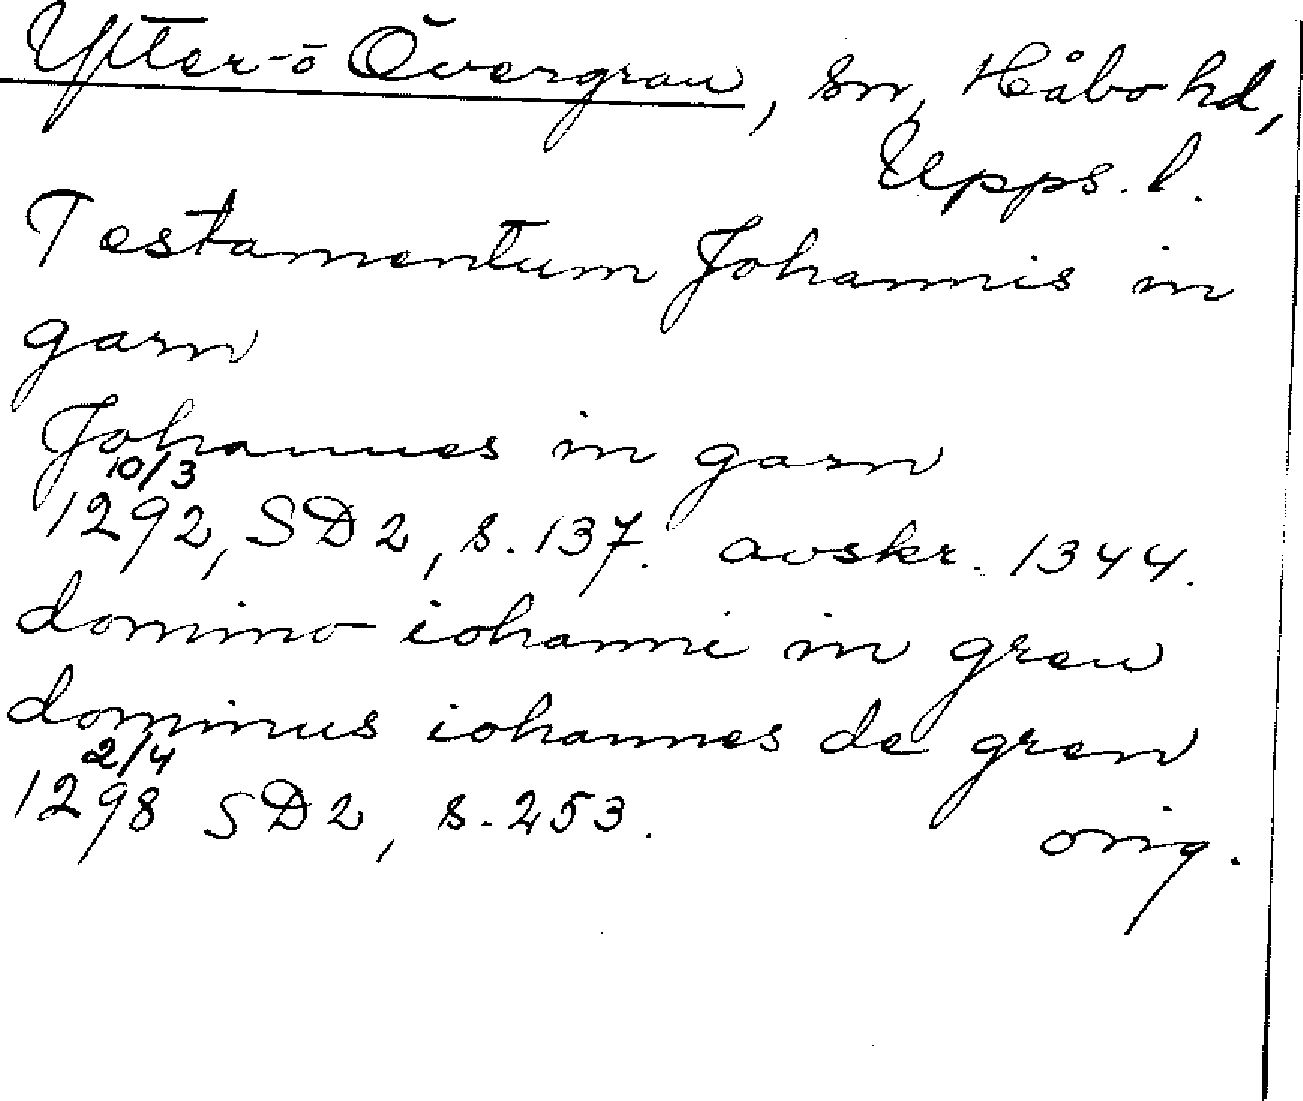 Ytter- o Övergran, sn, Håbo hd,
Upps. l.
Testamentum Johannis in
garn
Johannes in garn
10/3
1292, SD 2, s. 137. avskr. 1344.
domino iohanni in gren
dominus iohannes de gren
2/4
1298 SD 2, s. 253. orig.